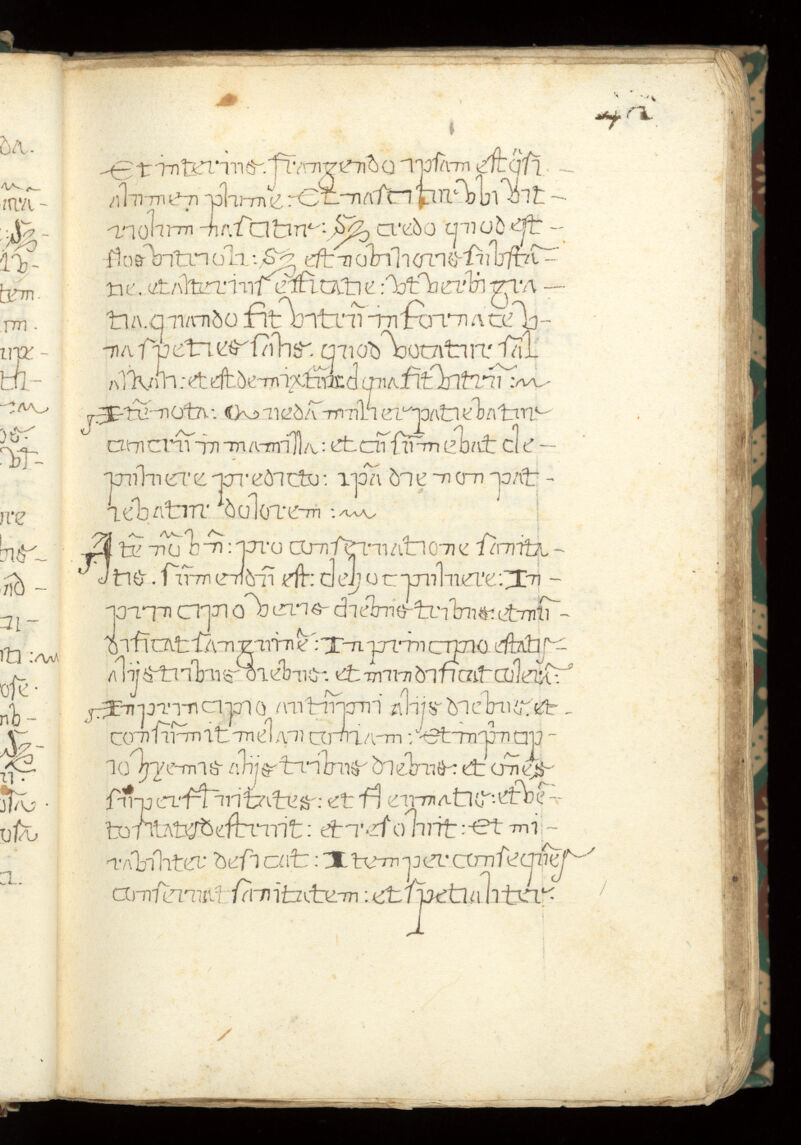 Et interius. frangendo ipsam est q̃si
alumen plume: Et nascitur vbi vit-
riolum nascitur: Sʒ credo quod est
flos vitrioli: Sʒ est nobilioris substã-
tie. et alterius efficatie: vt verbi gra-
tia. quando fit vitrũ in fornace b-
na species salis. quod vocatur sal
alkali: et est de mixtura qua fit vitrũ:
Itẽ nota: Quedã mulier patiebatur
cancrũ in mamilla: et cũ sũmebat de
puluere predicto: ipã die non pat-
iebatur dolorem:
Itẽ nõ bñ: pro conseruatione sanita-
tis. sũmendũ est: de hoc puluere: In
principio veris diebus tribus: et mũ-
dificat sanguinẽ: In principio estatis
alijs tribus diebus. et mundificat colerã:
In principio autũpni alijs diebus: et
consũmit melanconiam: Et in pñcip-
io hyemis alijs tribus diebus: et omẽs
superfluitates: et fleumatis: et vẽ-
tositates destruit: et resoluit: Et mi-
rabiliter desicat: Item per consequẽs
conseruat sanitatem: et spetialiter